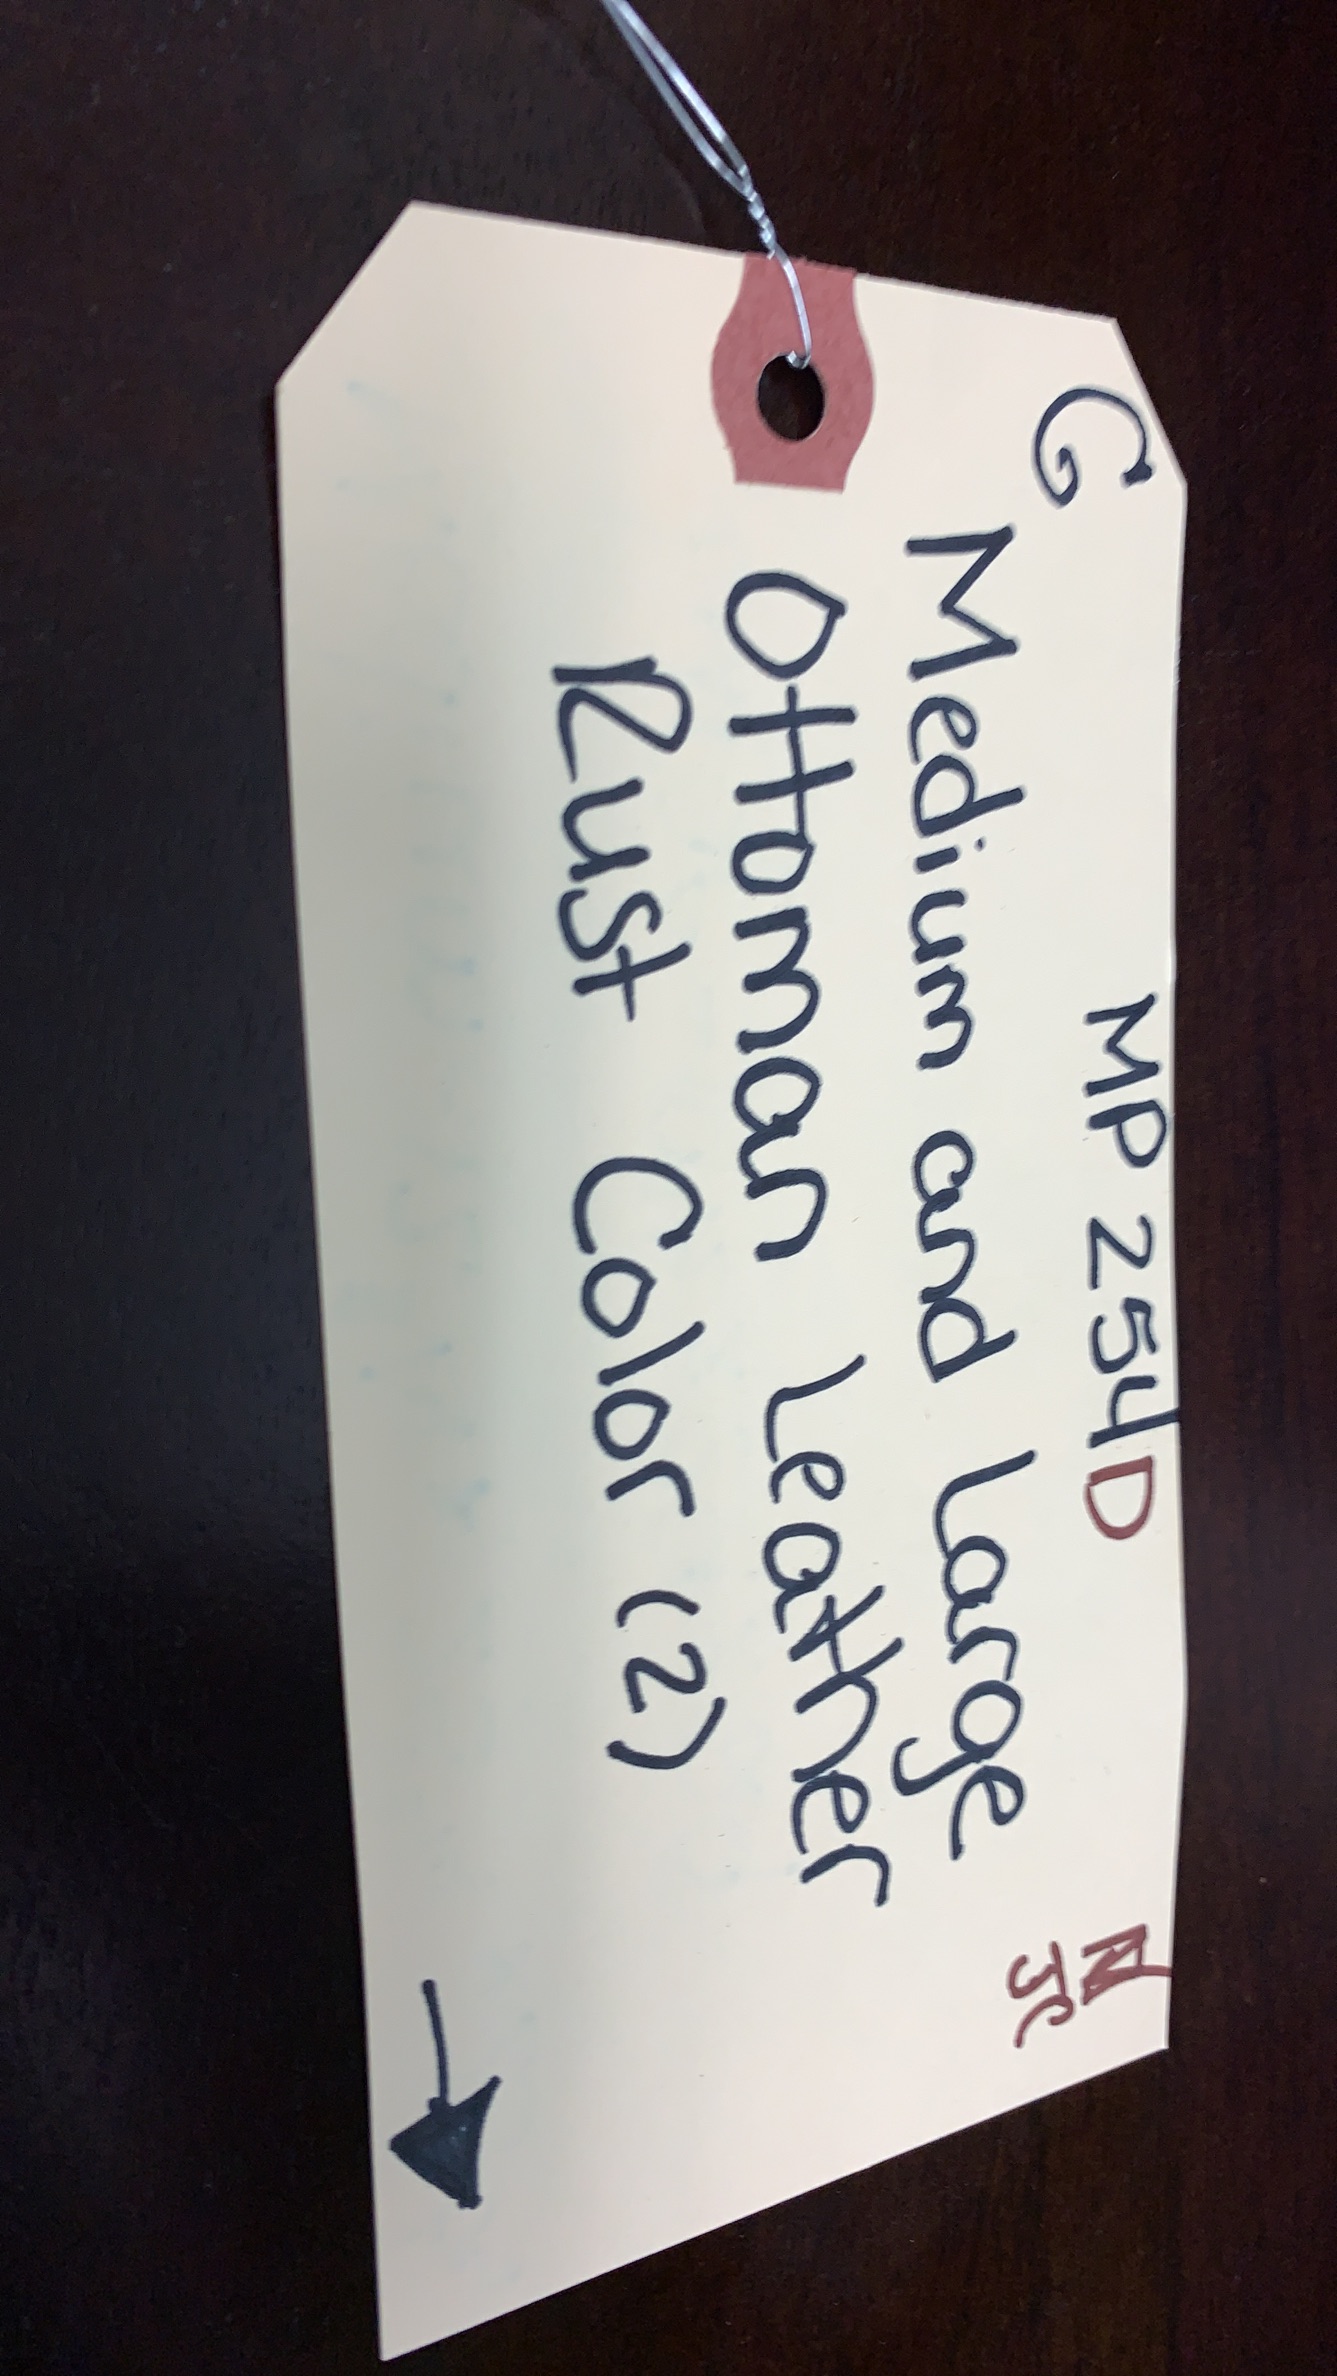 G MP 254D
Medium and Large
Ottoman Leather
Rust Color (2)
JC